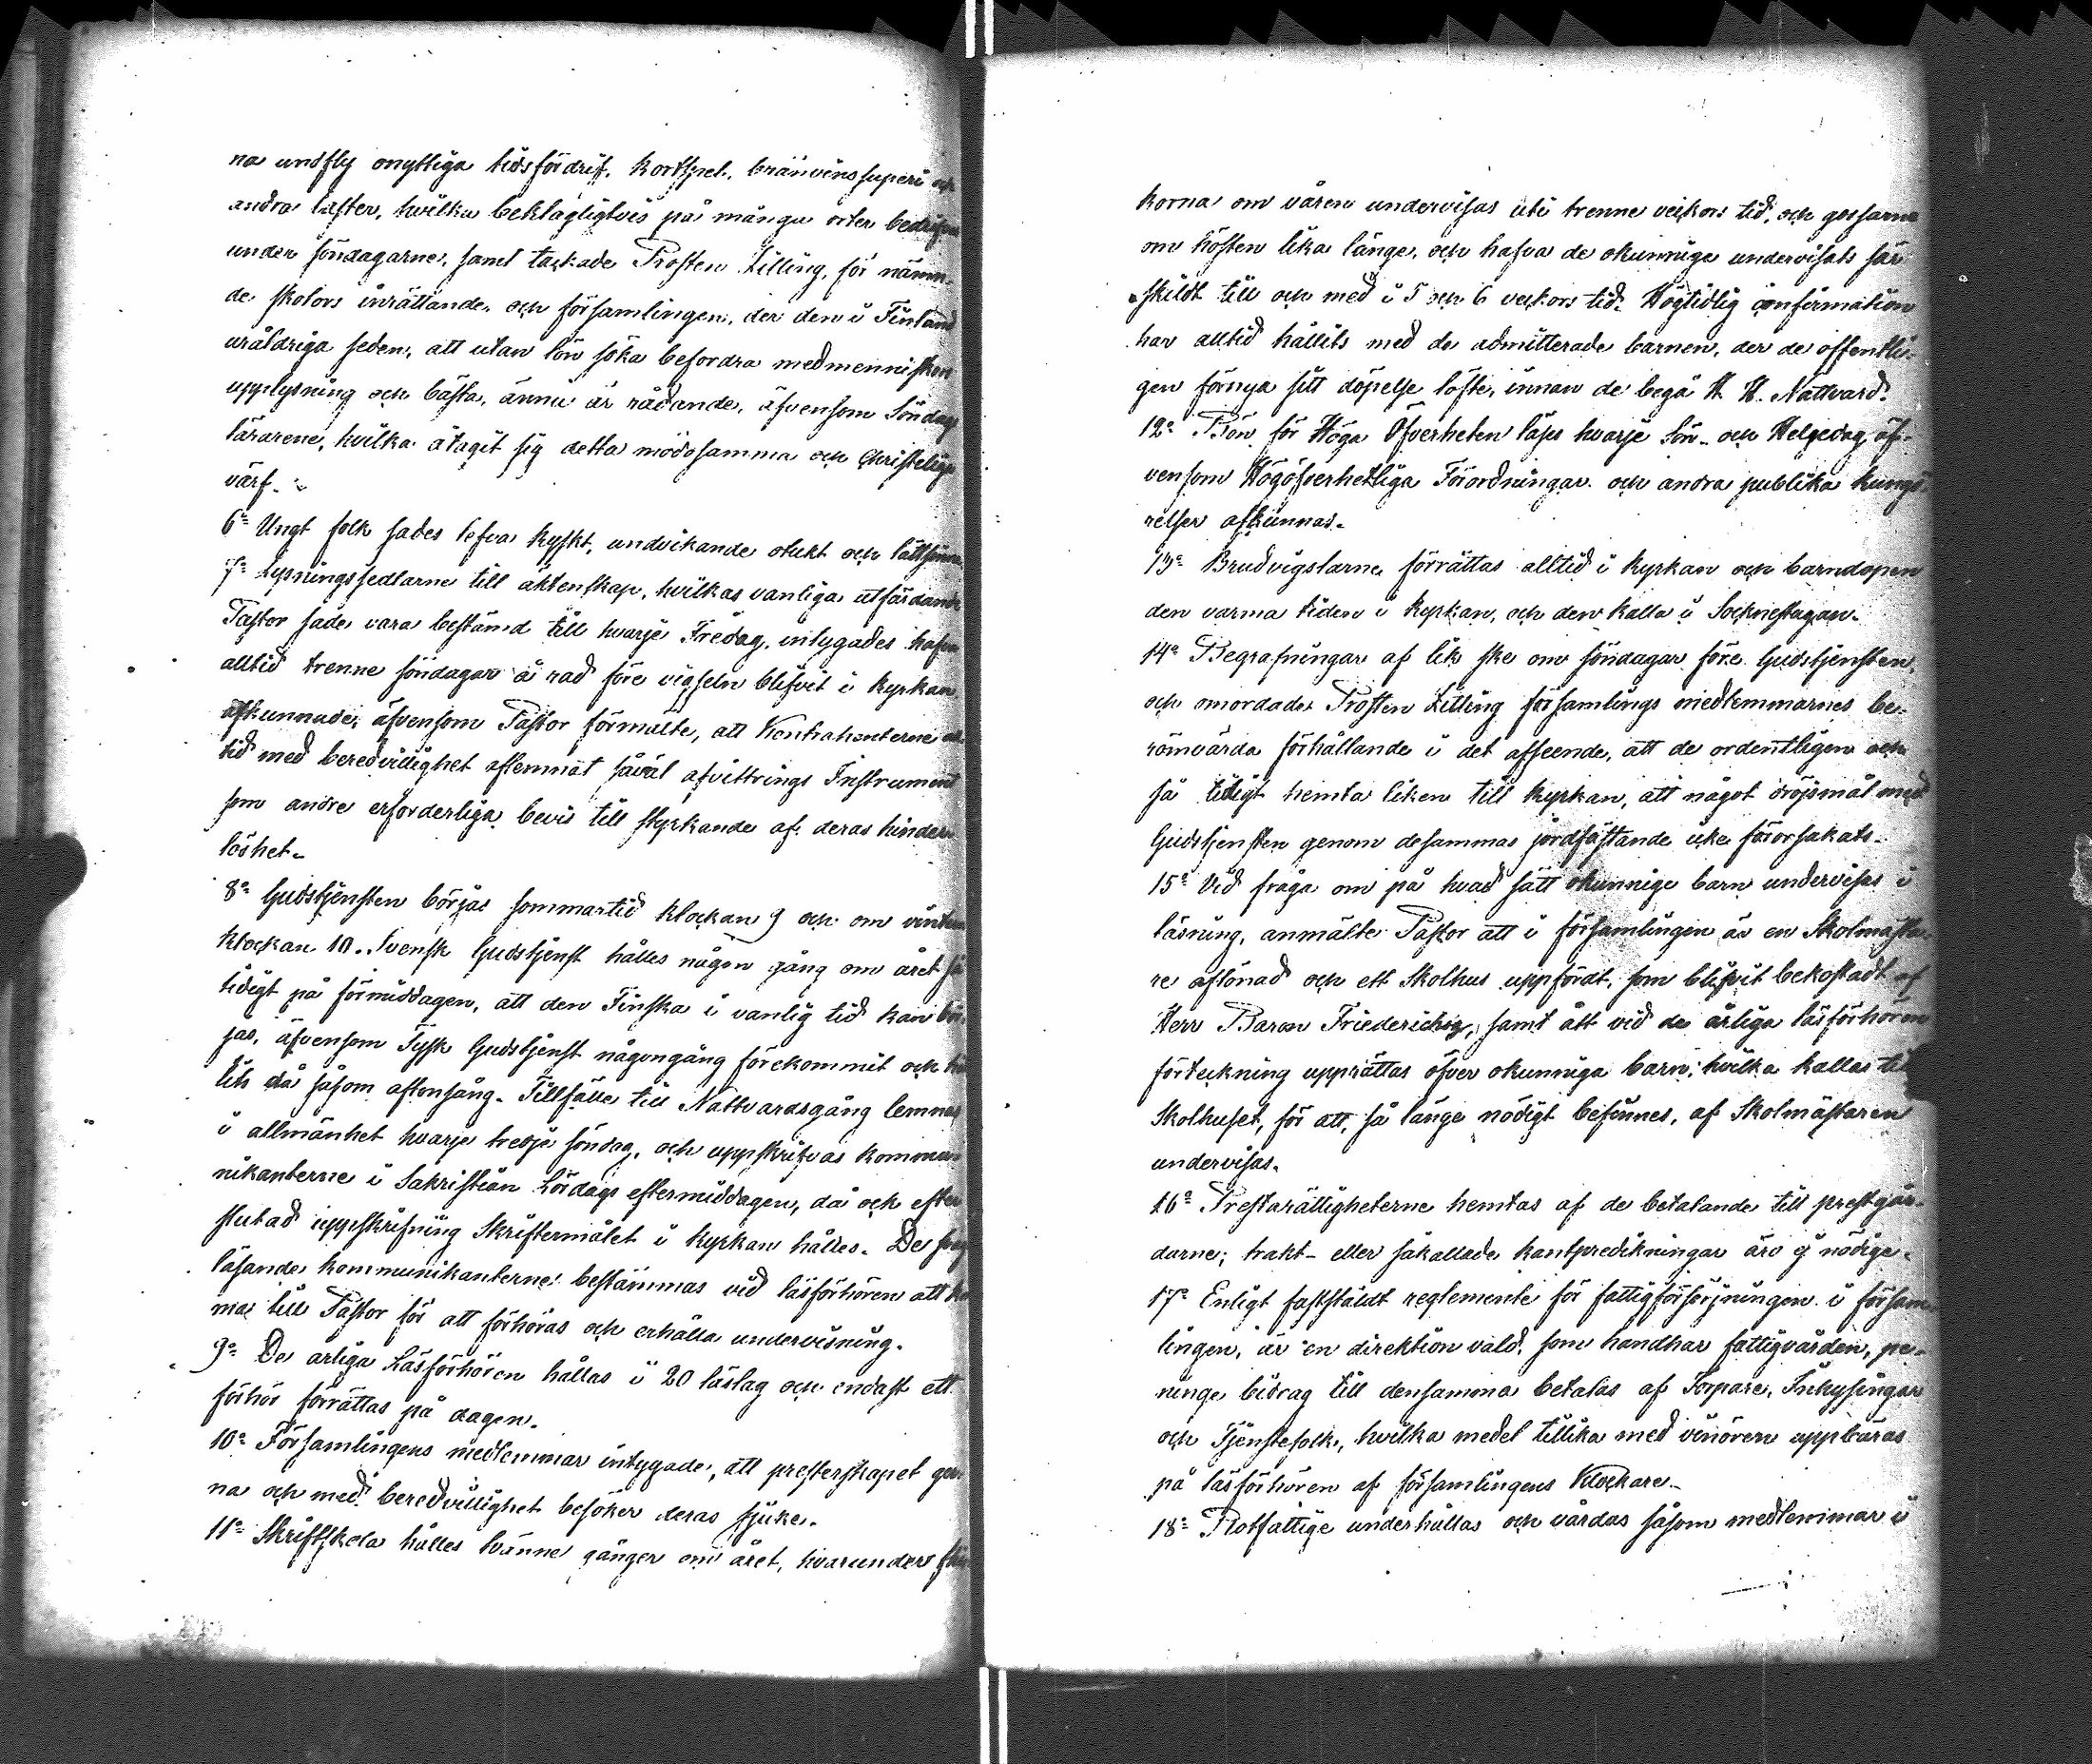 na undfly onyttiga tidsfördrif, kortspel, bränvinssuperi och
andra laster, hvilka beklagligtvis på många orter bedrifvas
under söndagarne, samt tackade Prosten Zilling, för nämn-
de skolors inrättande, och församlingen, der den i Finland
uråldriga seden, att utan lön söka befordra medmenniskors
upplysning och bästa, ännu är rådande, äfvensom Söndags
lärarene, hvilka åtagit sig detta mödosamma och Christeliga
värf.
6o Ungt folk sades lefva kyskt, undvikande otukt och lättsinne.
7o Lysningssedlarne till äktenskap, hvilkas vanliga utfärdande
Pastor sade vara bestämd till hvarje Fredag, intygades hafva
alltid trenne söndagar å rad före vigseln blifvit i kyrkan
afkunnade, äfvensom Pastor förmälte, att Kontrahenterne all-
tid med beredvillighet aflemnat såväl afvittrings Instrument
som andre erforderliga bevis till styrkande af deras hinders
löshet.
8o Gudstjensten börjas sommartid klockan 9 och om vintern
klockan 10. Svensk Gudstjenst hålles någon gång om året så
tidigt på förmiddagen, att den Finska i vanlig tid kan bör-
jas, äfvensom Tysk Gudstjenst någongång förekommit och hål
lits då såsom aftonsång. Tillfälle till Nattvardsgång lemnas
i allmänhet hvarje tredje söndag, och uppskrifvas kommu-
nikanterne i Sakristian Lördags eftermiddagen, då och efter
slutad uppskrifning Skriftermålet i kyrkan hålles. De svag
läsande kommunikanterne bestämmas vid läsförhören att kom
ma till Pastor för att förhöras och erhålla undervisning.
9o De årliga Läsförhören hållas i 20 läslag och endast ett
förhör förrättas på dagen.
10o Församlingens medlemmar intygade, att presterskapet ger-
na och med beredvillighet besöker deras sjuke.
11o Skriftskola hålles tvänne gånger om året, hvarunder flic
korna om våren undervisas uti trenne veckors tid, och gossarna
om hösten lika länge, och hafva de okunniga undervisats sär-
skildt till och med i 5 och 6 veckors tid. Högtidlig confirmation
har alltid hållits med de admitterade barnen, der de offentli-
gen förnya sitt döpelse löfte, innan de begå H. H. Nattvard.
12o Bön för Höga Öfverheten läses hvarje Sön- och Helgedag, äf-
vensom Högöfverhetliga Förordningar och andra publika kungö-
relser afkunnas.
13o Brudvigslarne förrättas alltid i kyrkan och barndopen
den varma tiden i kyrkan, och den kalla i Socknestugan.
14o Begrafningar af lik ske om söndagar före Gudstjensten,
och omordade Prosten Zilling församlings medlemmarnes be-
römvärda förhållande i det afseende, att de ordentligen och
så tidigt hemta liken till kyrkan, att något dröjsmål med
Gudstjensten genom desammas jordfästande icke förorsakats.
15o Vid fråga om på hvad sätt okunnige barn undervisas i
läsning, anmälte Pastor att i församlingen är en Skolmästa-
re aflönad och ett Skolhus uppfördt, som blifvit bekostadt af
Herr Baron Friederichsz, samt att vid de årliga läsförhören
förteckning upprättas öfver okunniga barn, hvilka kallas till
Skolhuset, för att, så länge nödigt befinnes, af Skolmästaren
undervisas.
16o Prestarättigheterne hemtas af de betalande till prestgår-
darne; trakt- eller såkallade kantpredikningar äro ej nödige.
17o Enligt fastställdt reglemente för fattigförsörjningen i försam-
lingen, är en direktion vald, som handhar fattigvården, pe-
ninge bidrag till densamma betalas af Torpare, Inhysingar
och Tjenstefolk, hvilka medel tillika med vinören uppbäras
på läsförhören af församlingens Klockare.
18o Rotfattige underhållas och vårdas såsom medlemmar i